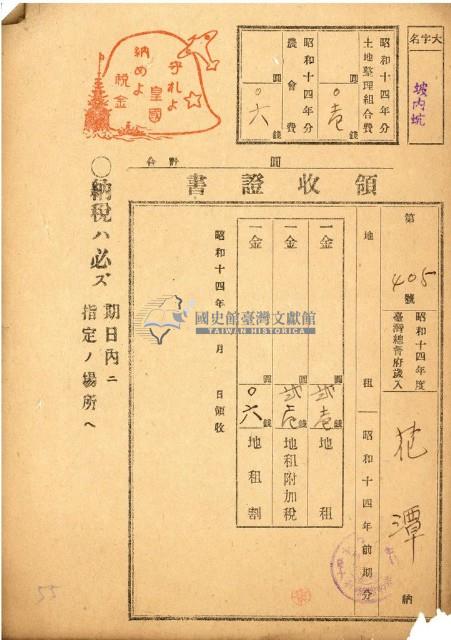 大字名
坡内坑
昭和十四年分
土地整理組合費
圓
〇壱錢
昭和十四年分
農會費
圓
〇六錢
守れよ
皇國
納めよ
税金
領收證書
第405號
昭和十四年度
臺灣總督府歲入
花潭
納
地租
昭和十四年前期分
一金
圓
弐壱錢
地租
一金
圓
弐壱錢
地租附加税
一金
圓
〇六錢
地租割
昭和十四年
月
日領收
〇納税ハ必ズ
期日内ニ
指定ノ場所ヘ
國史館臺灣文獻館
TAIWAN HISTORICA
55